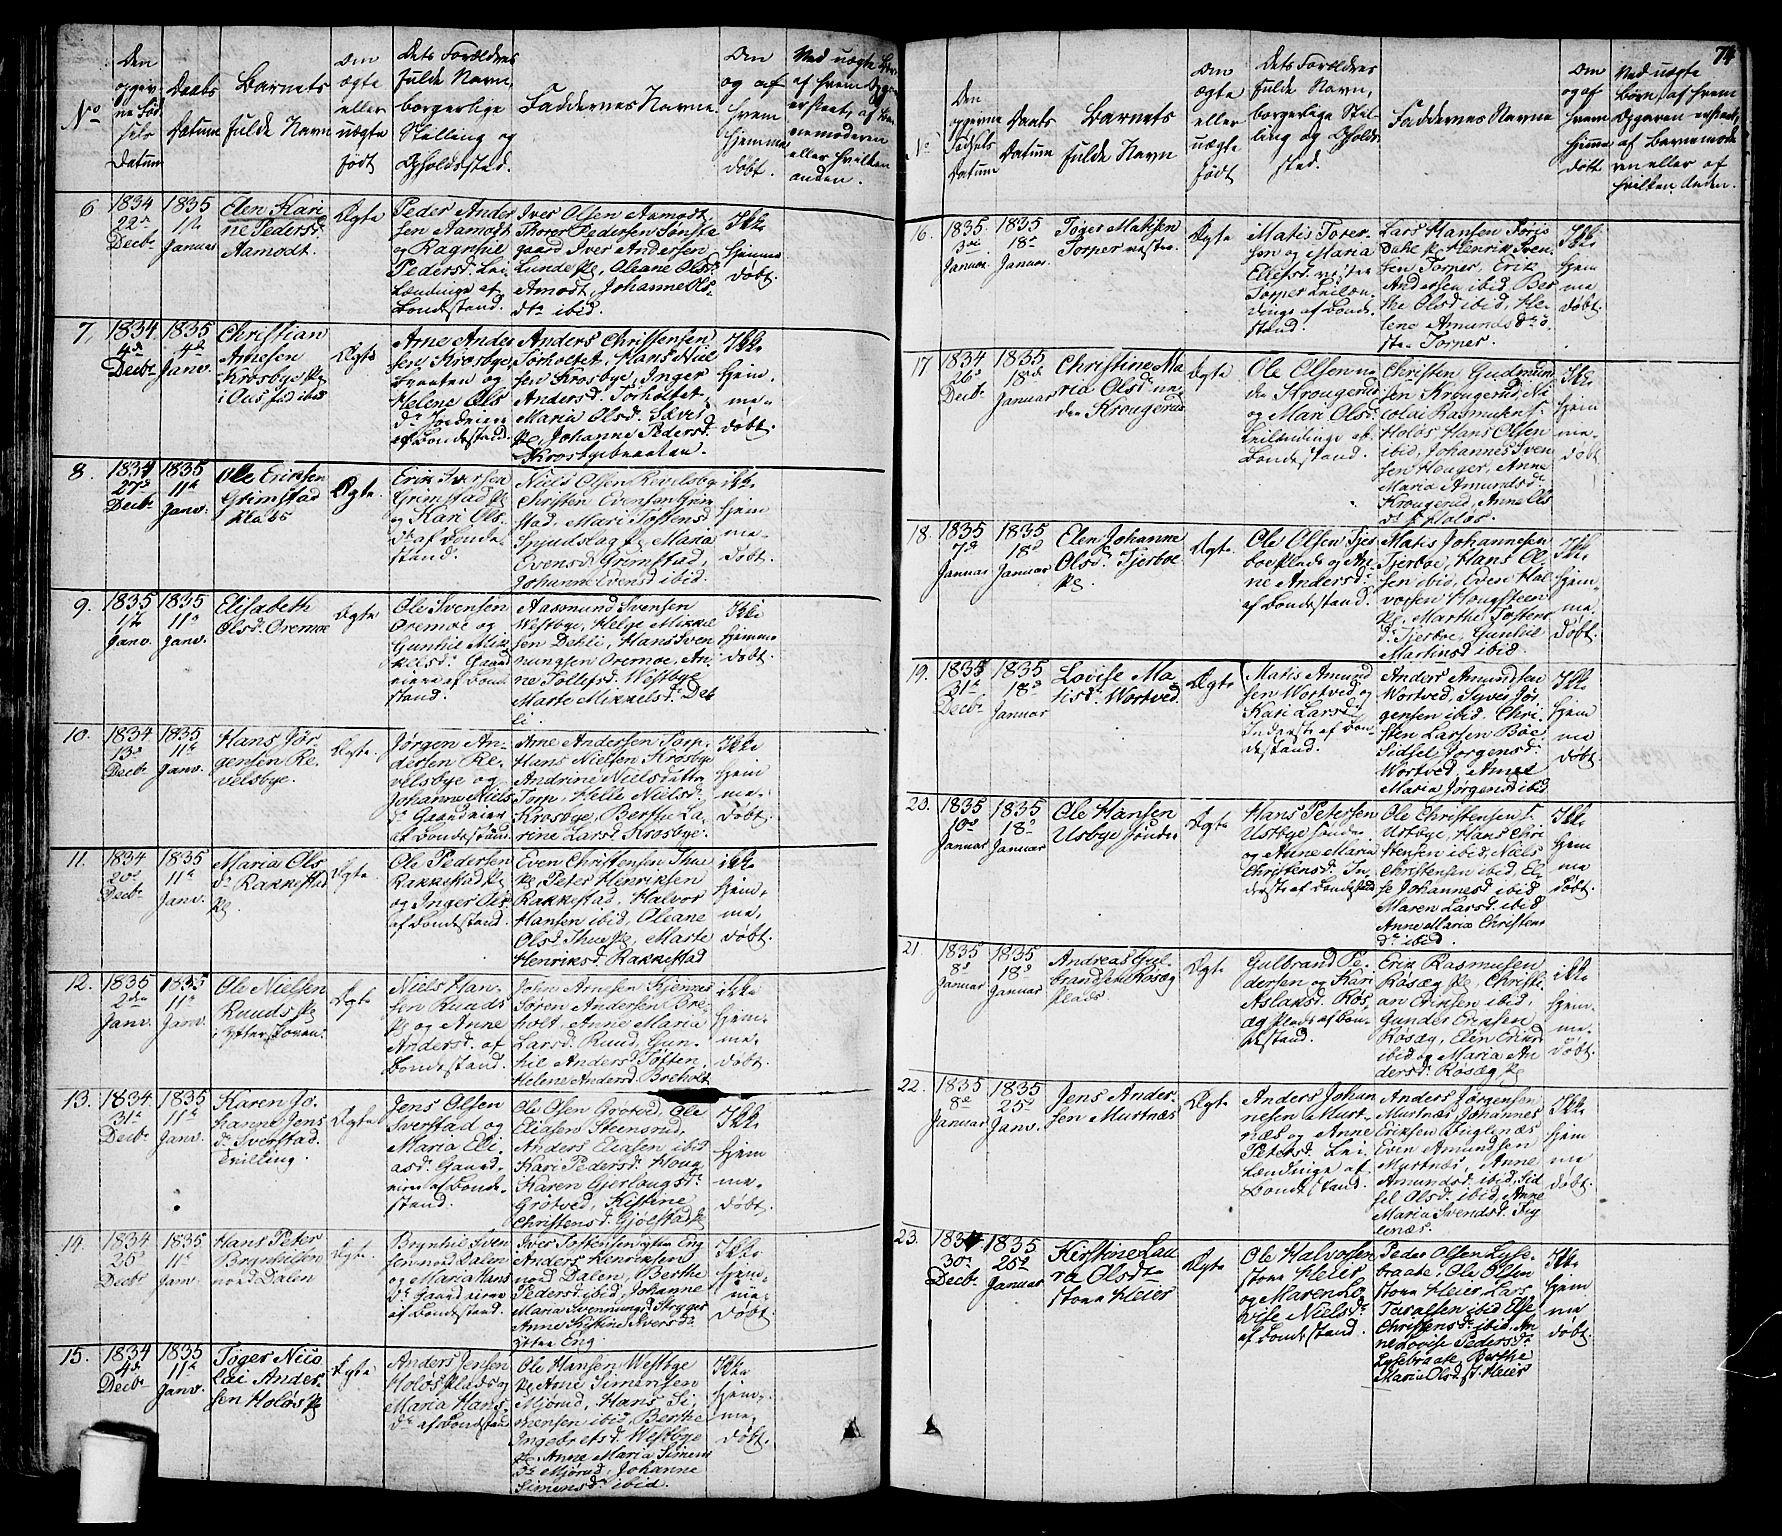 74
No
Den
opgiv
ne Fød
sels
Datum
Daabs
Datum
Barnets
fulde Navn
Om
ægte
eller
uægte
født
Dets Forældres
fulde Navn,
borgerlige
Stilling og
Opholdssted.
Faddernes Navne
Om
og af
hvem
hjemme
døbt.
6
1834
22de
Decbr
1835
Januar
Elen Kari
ne Pedersd.
Aamodt.
Ægte
Peder Ander
sen Aamodt
og Ragnhil
Pedersd. Lei
lændinge af
Bondestand.
Iver Olsen Aamodt,
Thorer Pedersen
gaard Iver Andersen
Lunde Pl, Oleane Olsd.
Amodt, Johanne Ols
dtr ibid.
Ikke
hjemme
døbt.
7.
1834
4de
Decbr
1835
4de
Janv.
Christian
Arnesen
Krosbye
Ægte
Arne Ander
sen Krosbye
braaten og
Helene Ols
dr
af Bondestand.
Anders Christensen
Torholtet, Hans Niel
sen Krosbye, Inger
Andersd. Torholtet,
Maria Olsd.
Pl, Johanne Pedersd.
Krosbyebraaten.
Ikke
hjem
me
døbt.
8.
1834
27de
Decbr
1835
11te
Janv.
Ole Eriksen
Grimstad
Plads
Ægte.
Erik Iversen
Grimstad Pl
og Kari Ols
dr af Bonde
stand.
Niels Olsen Revelsby
Christen Evensen Grim
stad. Mari Tostensd.
Maria
Evensd. Grimstad,
Johanne Evensd ibid.
ikke
hjem
me
døbt.
9.
1835
1ste
Janv.
1835
11te
Janv.
Elisabeth
Olsd. Oremoe
Ægte
Ole Svensen
Oremoe og
Gunhil Mik
kelsd. Gaard
eiere af Bonde
stand.
Aasmund Svensen
Westbye, Helge Mikkel
sen Dehli, Hans Sven
nungsen Oremoe, An
ne Tollefsd. Westbye
Marte Mikkelsd. Deh
li.
Ikke
hjemme
døbt.
10.
1834
13de
Decbr
1835
11te
Janv.
Hans Jør
gensen Re
velsbye.
Ægte.
Jørgen An
dersen Re
velsbye og
Johanne Niels
dr Gaardeiere
af Bondestand
Arne Andersen Torp,
Hans Nielsen Krosbye
Andrine Nielsdatter
Torp, Helle Nielsd.
Krosbye, Berthe La
rine Larsd. Krosbye.
Ikke
hjem
me
døbt.
11.
1834
20de
Decbr
1835
11te
Janv.
Maria Ols
dr Rakkestad
Pl
Ægte
Ole Pedersen
Rakkestad Pl
og Inger Olsd.
af Bondestand.
Even Christensen Thue
Pl, Peter Henriksen
Rakkestad, Halvor
Hansen ibid, Oleane
Olsd. Thue Pl, Marte
Henriksd. Rakkestad
ikke
hjem
me
døbt.
12.
1835
2den
Janv.
1835
11te
Janv.
Ole Nielsen
Ruuds Pl
Ægte
Niels Han
sen Ruuds
Pl og Anne
Andersd. af
Bondestand.
John Arnesen Hjennes
Søren Andersen Bre
holt, Anne Maria
Larsd. Ruud, Gun
hil Andersd. Toften,
Helene Andersd. Breholt
ikke
hjem
me
døbt.
13.
1834
31te
Decbr
1835
11te
Janv.
Karen Jo
hanne Jens
dr Sverstad.
Tvilling.
Ægte
Jens Olsen
Sverstad og
Maria Eli
asd. Gaard
eiere af Bonde
stand.
Ole Olsen Grøtved, Ole
Eliasen Steensrud,
Anders Eliasen ibid
Kari Pedersd. Houg
Karen Gjerlougsd.
Grøtved, Kistine
Christensd. Gjølstad Pl
Ikke
hjem
me
døbt.
14.
1834
25de
Decbr
1835
11te
Janv.
Hans Peter
Brynhilsen
nord Dalen
Ægte.
Brynhil Iver
sen nord Dalen
og Maria Hans
dr Gaardeiere
af Bondestand.
Iver Tostensen yttre Eng
Anders Henriksen
nord Dalen, Berthe
Pedersd. ibid, Johanne
Maria Svennungsd.
Anne Kistine Iversd.
yttre Eng
Ikke
hjem
me
døbt.
15.
1834
4de
Decbr
1835
11te
Janv.
Tøger Nico
lai Ander
sen Holøs Pl
Ægte
Anders Jensen
Holøs Plads og
Maria Hans
dr af Bondestand
Ole Hansen Westbye
Pl, Arne Simensen
Mjørud, Hans Si
mensen ibid, Berthe
Ingebretsd. Westbye
Pl, Anne Maria Simens
dr Mjørud, Johanne
Simensdr ibid.
Ikke
hjem
me
døbt.
No
Den
opgivne
Fødsels
Datum
Daabs
Datum
Barnets
fulde Navn
Om
ægte
eller
uægte
født
dets Forældres
fulde Navn,
borgerlige Stil
ling og Opholds
sted.
Faddernes Navne
Om
og af
hvem
hjemme
døbt
Ved uægte
Børn, af hvem
Opgaven er skeet,
af Barnemode
ren eller af
hvilken Anden.
16.
1835
3die
Januar
1835
18de
Januar
Tøger Matisen
Torper
Ægte
Matis Tøger
sen og Maria
Torper Leilæn
dinge af Bonde
stand.
Lars Hansen
Henrik Sven
sen Torper, Erik
Andersen ibid, Ber
the Olsd ibid, He
lene Amundsdr
Torper.
Ikke
hjem
me
døbt.
17
1834
26de
Decbr
1835
18de
Januar
Christine Ma
ria Olsd. ne
den Krougerud
Ægte
Ole Olsen ne
den Krougerud
og Mari Olsd.
Leilændinge af
Bondestand.
Christen Gudmund
sen Krougerud, Ni
colai Rasmussen
Holøs Hans Olsen
ibid, Johannes Sven
sen Heager, Anne
Maria Amundsd.
Krougerud, Anne Ols
dr Holøs.
Ikke
hjem
me
døbt
18.
1835
7de
Januar
1835
18de
Januar
Elen Johanne
Olsd. Tjerboe
Pl.
Ægte
Ole Olsen Tjer
boe Plads og An
ne Andersd.
af Bondestand.
Matis Johannesen
Tjerboe, Hans Ol
sen ibid, Even Hal
vorsen Hougsteen
Pl, Marthe Tostens
dr Tjerboe, Gunhil
Martinsd ibid.
Ikke
hjem
me
døbt.
19.
1835
31te
Decbr
1835
18de
Januar
Lovise Ma
tisd. Wortved
Ægte
Matis Amund
sen Wortved og
Kari Larsd.
Inderste af Bon
destand.
Anders Amundsen
Wortved, Syver Jør
gensen ibid, Chri
sten Larsen Böe
Sidsel Jørgensd.
Wortved, Anne
Maria Jørgensd ibid
Ikke
hjem
me
døbt.
20.
1835
10de
Januar
1835
18de
Januar
Ole Hansen
Ustbye søndre
Ægte
Hans Petersen
Ustbye søndre
og Anne Maria
Christensd. In
derste af Bondestand
Ole Christensen
Ustbye, Hans Chri
stensen ibid, Niels
Christensen ibid, El
se Johannesd ibid
Maren Larsd. ibid
Anne Maria Christens
dr ibid.
Ikke
hjem
me
døbt.
21
1835
8de
Januar
1835
18de
Januar
Andreas Gul
brandsen Røsæg
Plads
Ægte
Gulbrand Pe
dersen og Kari
Aslaksd. Røs
æg Plads af Bon
destand.
Erik Rasmusen
Røsæg Pl, Christi
an Eriksen ibid,
Gunder Eriksen
Røsæg, Elen Eriksd
ibid og Maria An
dersd. Røsæg Pl
ikke
hjem
me
døbt.
22.
1835
8de
Januar
1835
25de
Janv.
Jens Ander
sen Murtnæs
Ægte
Anders Johan
nesen Murt
næs og Anne
Petersd. Lei
lændinge af
Bondestand.
Anders Jørgensen
Murtnæs, Johannes
Eriksen Fuglenæs
Even Amundsen
Murtnæs, Anne
Amundsd. ibid, Sid
sel Olsd. ibid, Anne
Maria Svendsd. Fug
lenæs.
Ikke
hjem
me
døbt.
23.
1834
30te
Decbr
1835
25de
Januar
Kirstine Lau
ra Olsdtr
store Heier
Ægte
Ole Halvorsen
store Heier
og Maren Lo
vise Nielsdr
af Bondestand.
Peder Olsen Lyse
braate, Ole Olsen
store Heier, Lars
Taralsen ibid, Else
Christensd. ibid, An
ne Lovise Pedersdr
Lysebraate, Berthe
Maria Olsd St. Heier
Ikke
hjem
me
døbt.